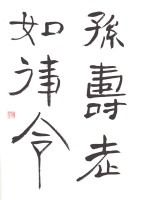 孫壽老
如律令